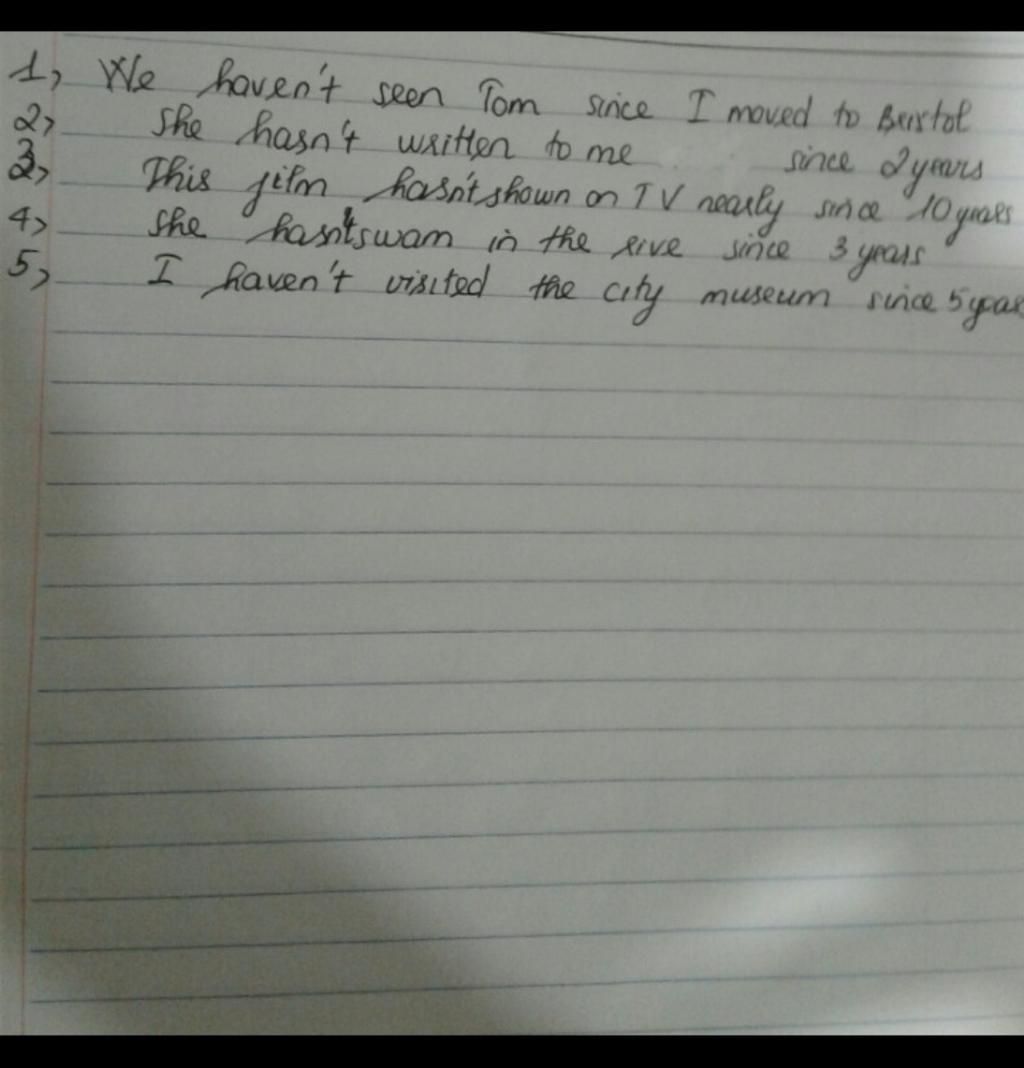 1, We haven't seen Tom since I moved to Bristol
2, She hasn't written to me since 2 years
3, This film hasn't shown on TV nearly since 10 years
4, She hasn't swam in the rive since 3 years
5, I haven't visited the city museum since 5 year